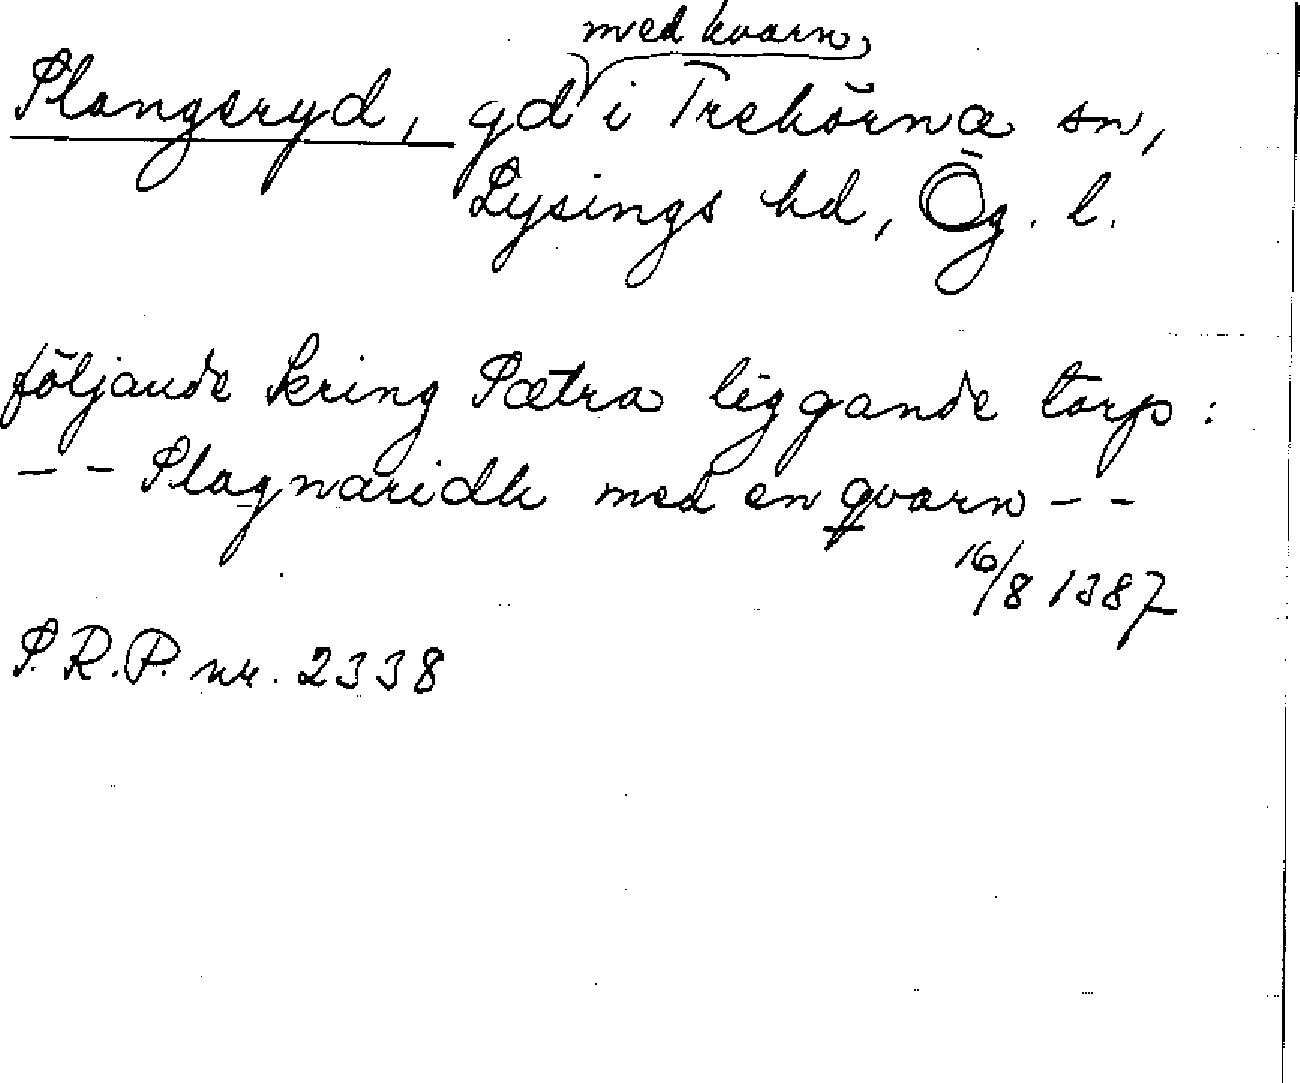 med kvarn,
Plangeryd, gd i Trehörna sn,
Lysings hd, Ög. l.
följande kring Pætra liggande torp:
-- Plagnaridh med en qvarn --
16/8 1387
P.R.P. nr. 2338